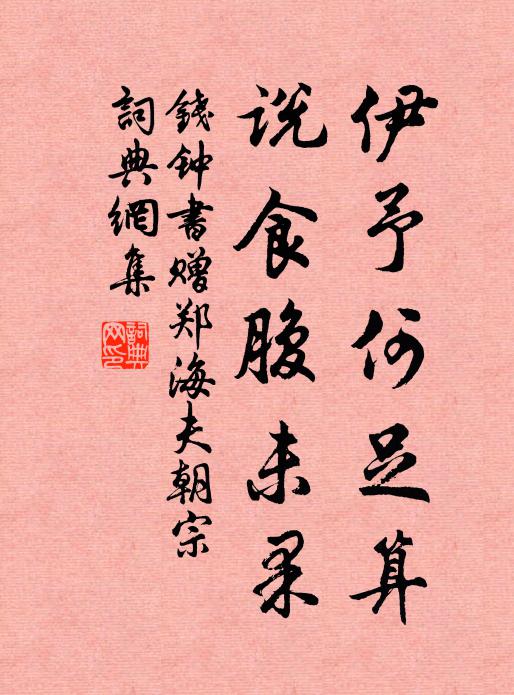 伊予何足算
说食腹未果
錢钟書赠郑海夫朝宗
詞典網集
詞典网印